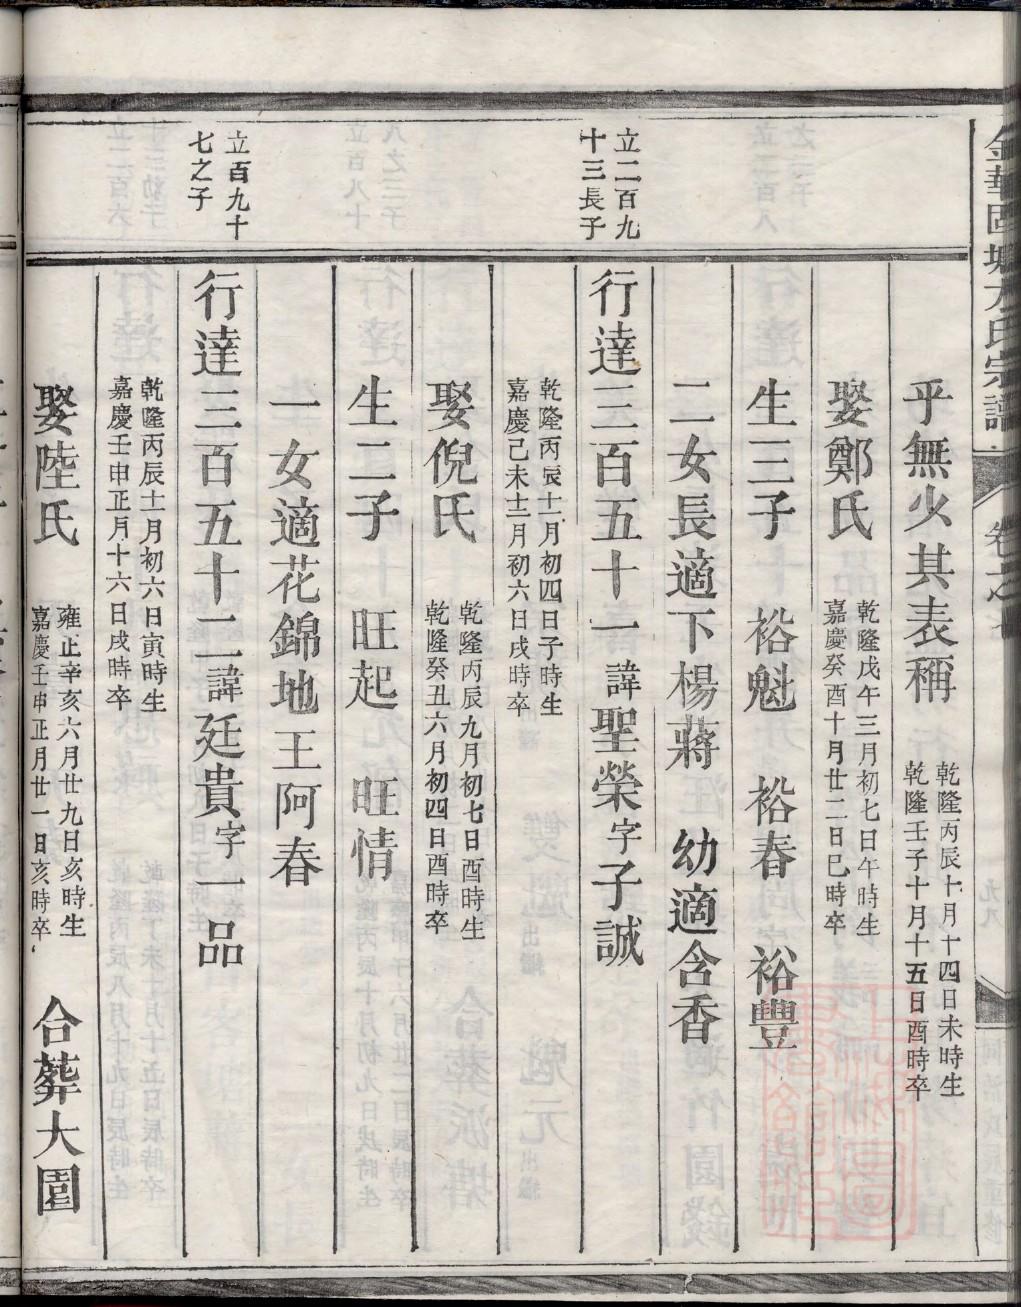 金華固塘方氏宗譜
卷之
乎無少其表稱
乾隆丙辰十月十四日未時生
乾隆壬子十月十五日酉時卒
娶鄭氏
乾隆戊午三月初七日午時生
嘉慶癸酉十月廿二日巳時卒
生三子 裕魁 裕春 裕豐
二女長適下楊蔣 幼適含香
立二百九
十三長子
行達三百五十一諱聖榮字子誠
乾隆丙辰十二月初四日子時生
嘉慶己未十二月初六日戌時卒
娶倪氏
乾隆丙辰九月初七日酉時生
乾隆癸丑六月初四日酉時卒
生二子 旺起 旺情
一女適花錦地王阿春
立百九十
七之子
行達三百五十二諱廷貴字一品
乾隆丙辰十一月初六日寅時生
嘉慶壬申正月十六日戌時卒
娶陸氏
雍正辛亥六月廿九日亥時生
嘉慶壬申正月廿一日亥時卒
合葬大園